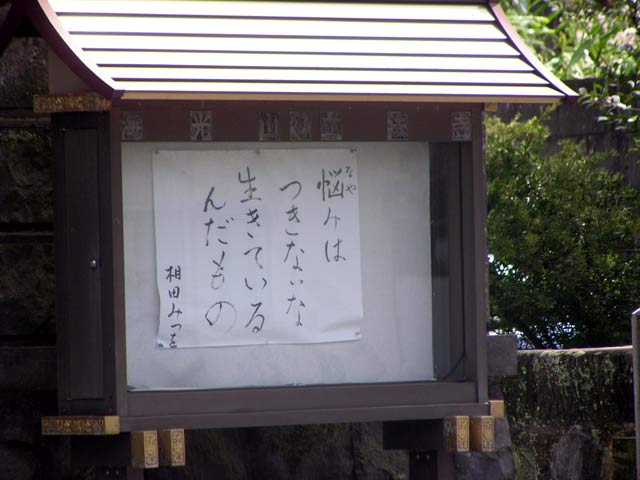 悩みは
なや
つきないな
生きている
んだもの
相田みつを